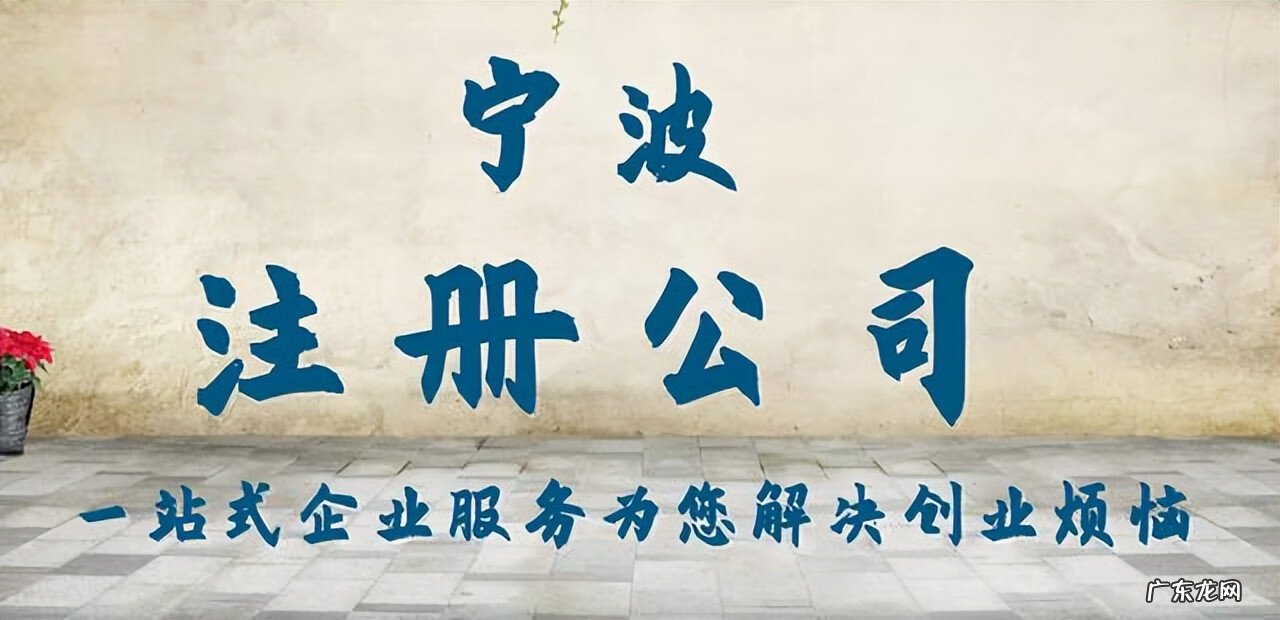 宁波
注册公司
一站式企业服务为您解决创业烦恼
广东龙网